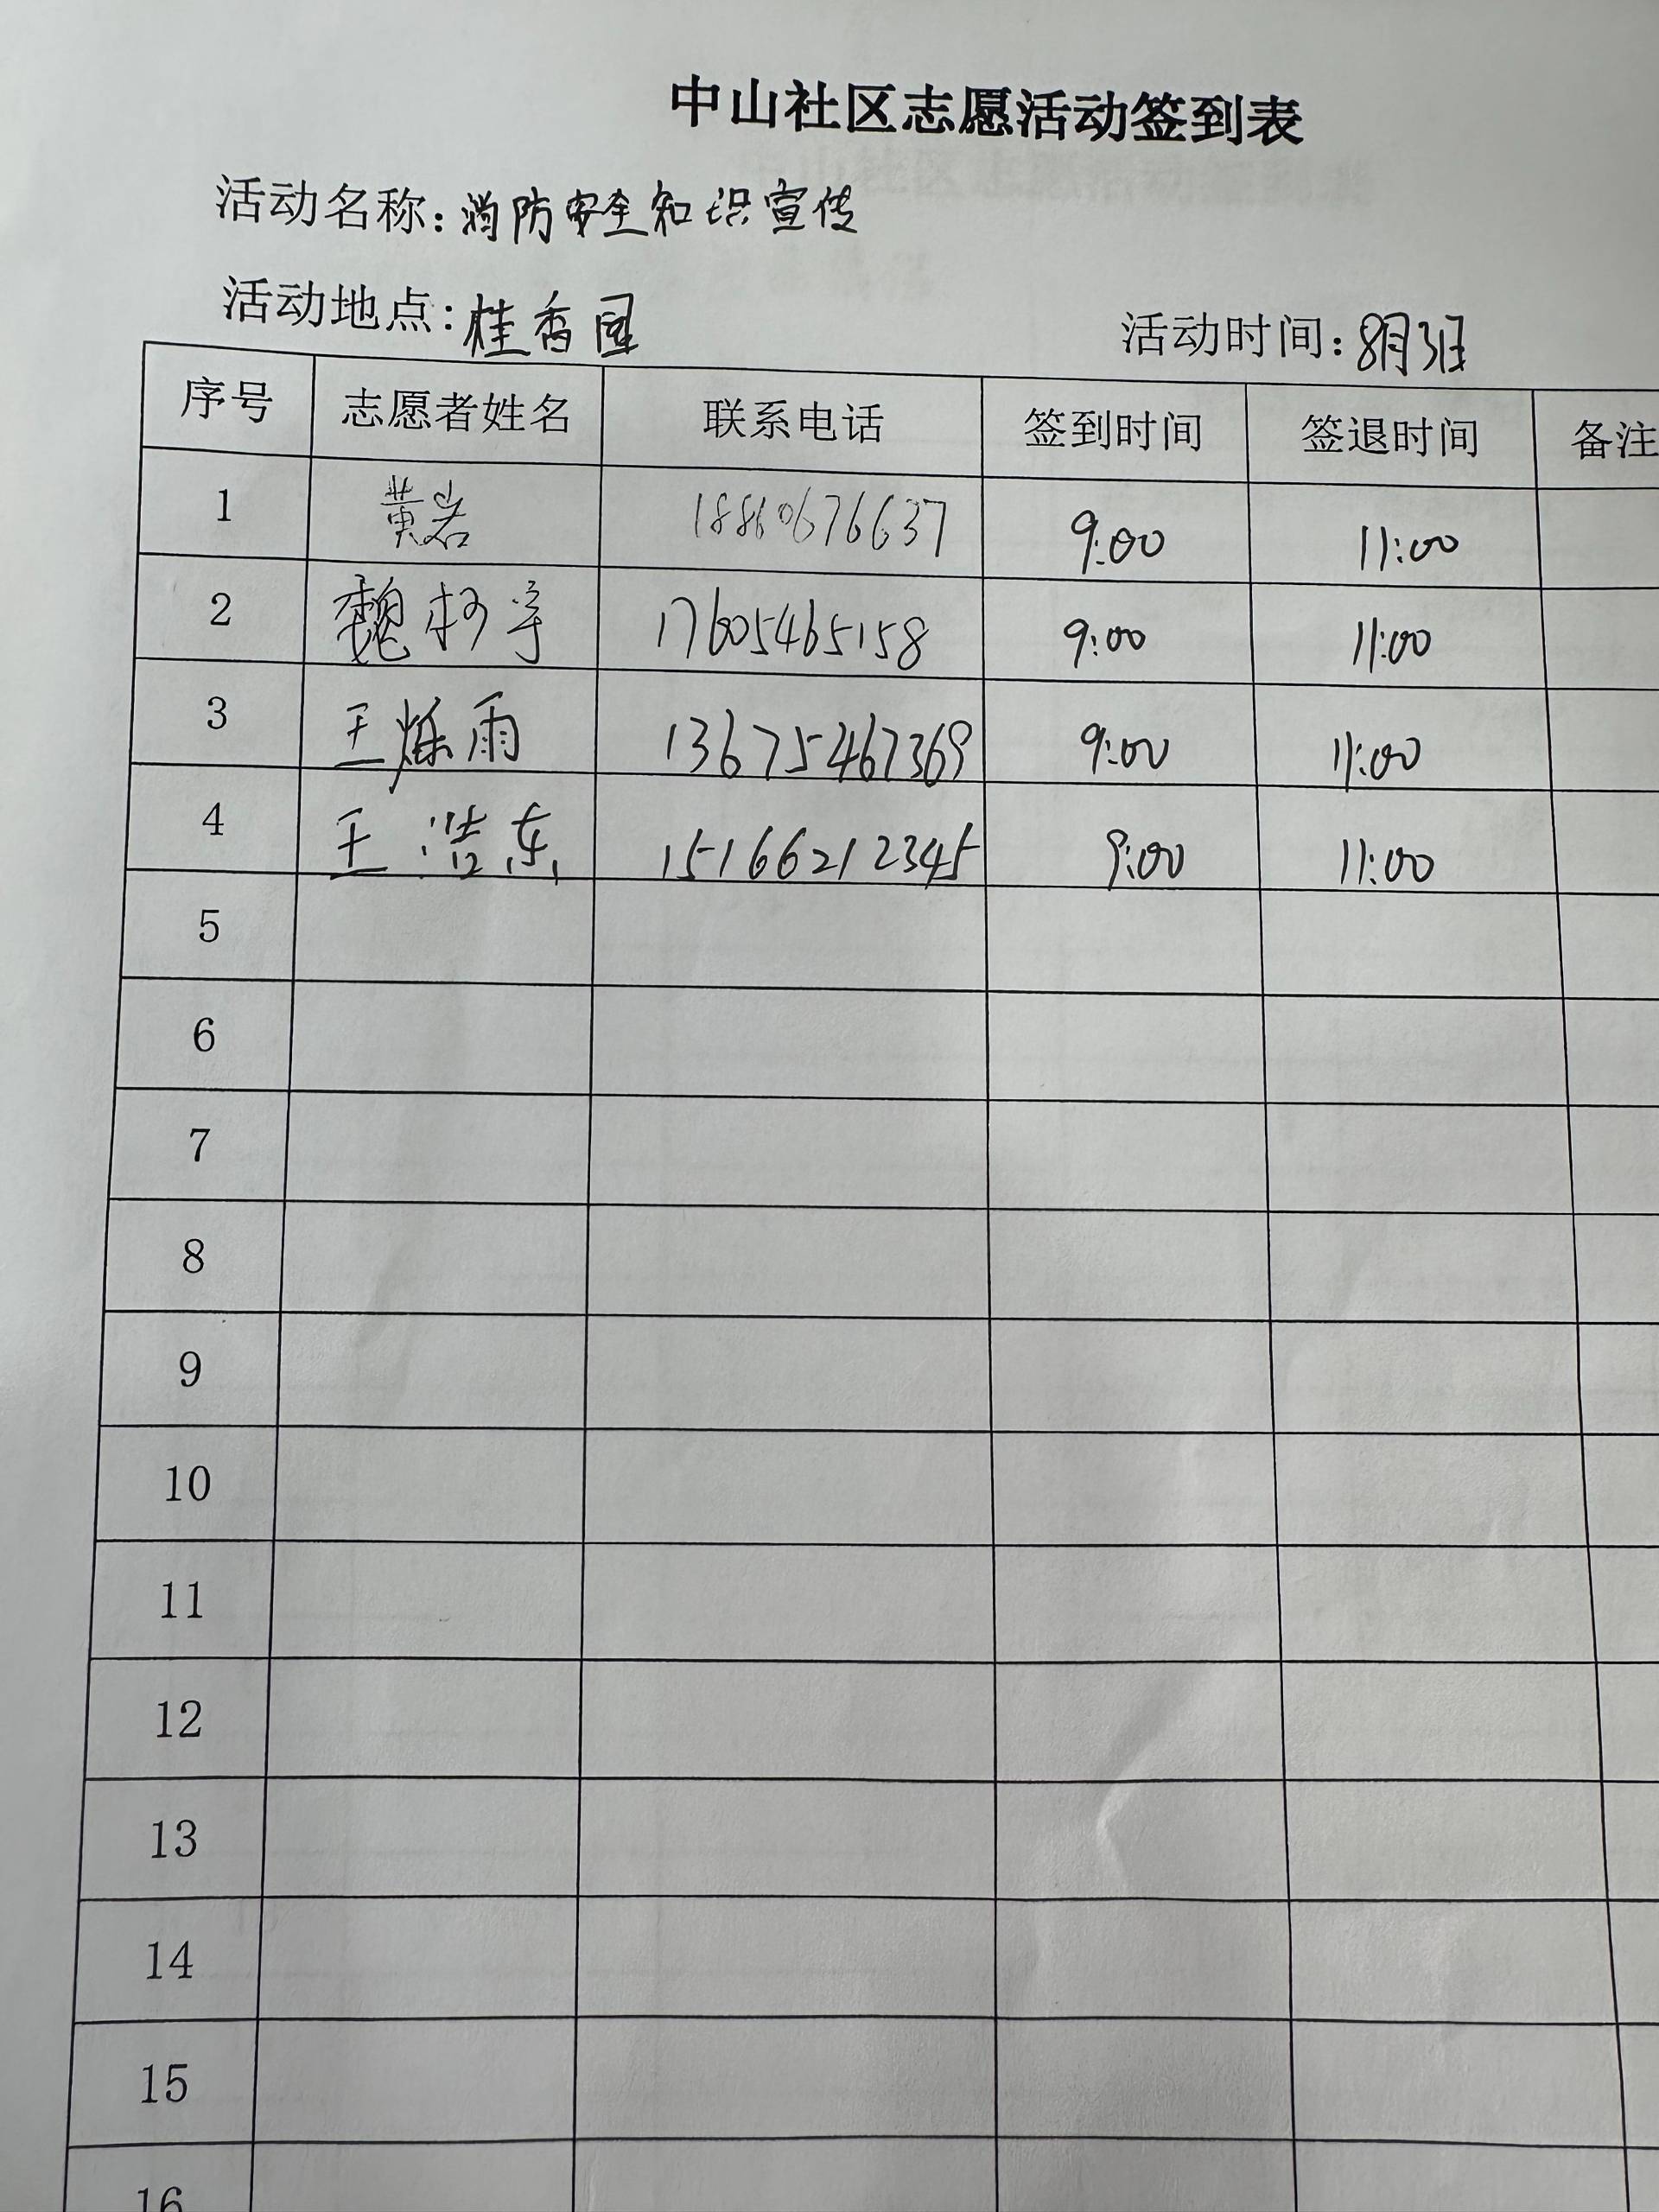 中山社区志愿活动签到表
活动名称:消防安全知识宣传
活动地点:桂香园
活动时间:8月3日
序号 志愿者姓名 联系电话 签到时间 签退时间 备注
1 黄岩 18810676637 9:00 11:00
2 魏柯宇 17605465158 9:00 11:00
3 王烁雨 13675467369 9:00 11:00
4 王浩东 15166212345 9:00 11:00
5
6
7
8
9
10
11
12
13
14
15
16